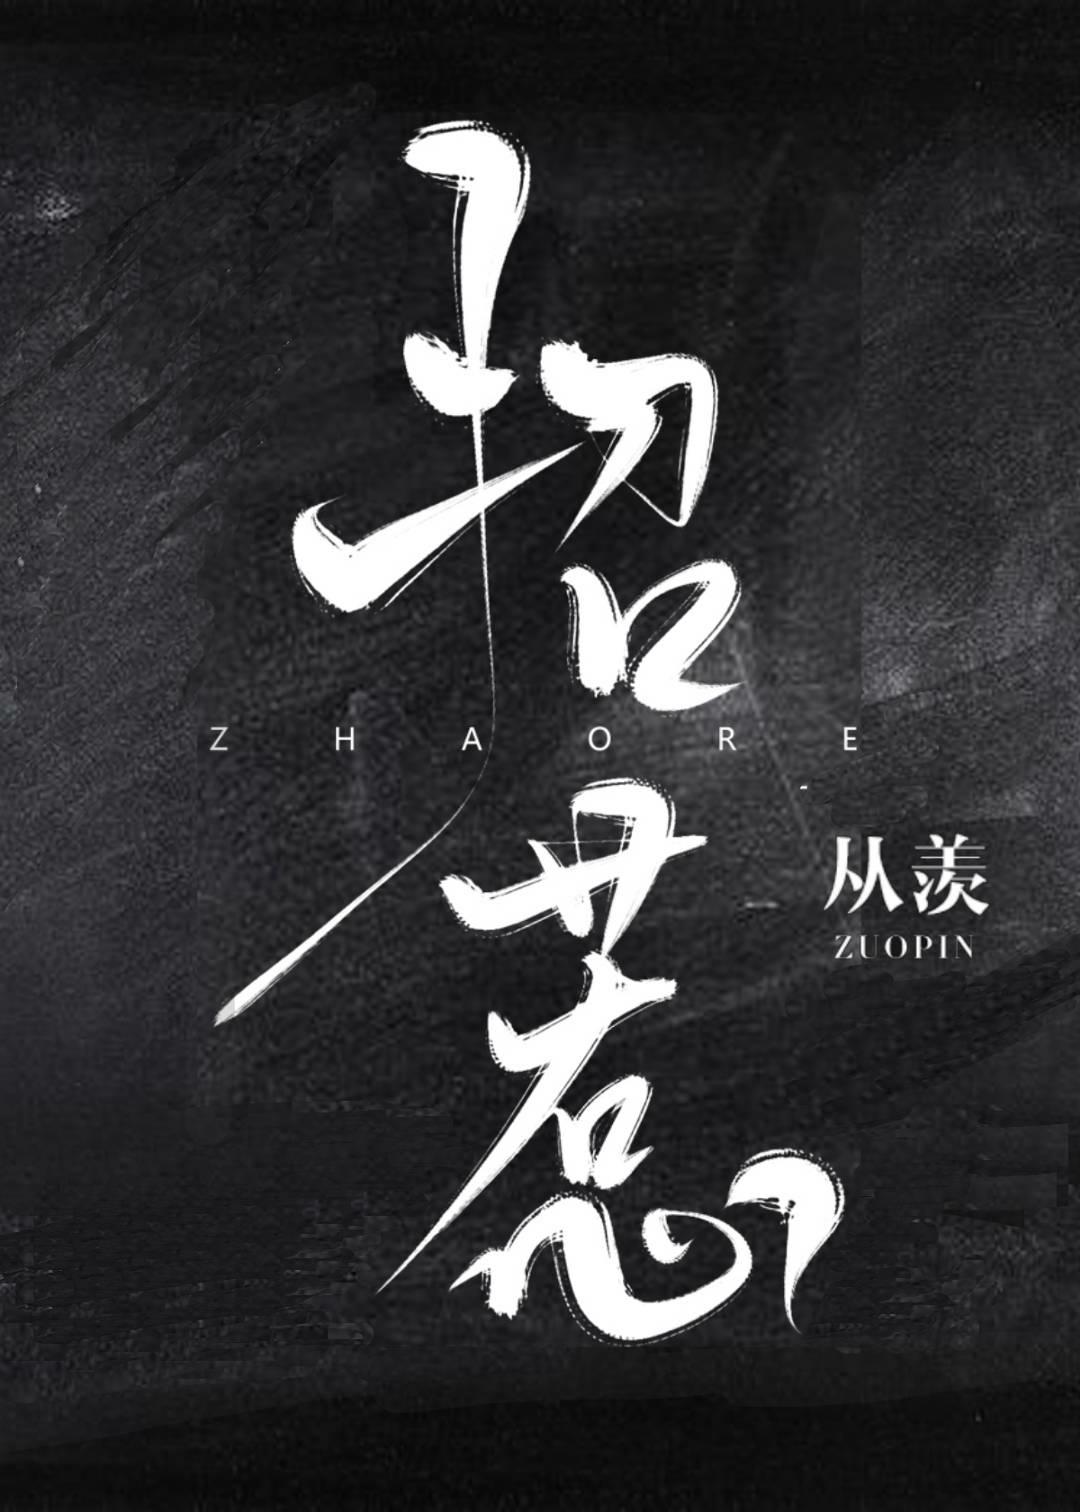 招惹
ZHAORE
从羡
ZUOPIN